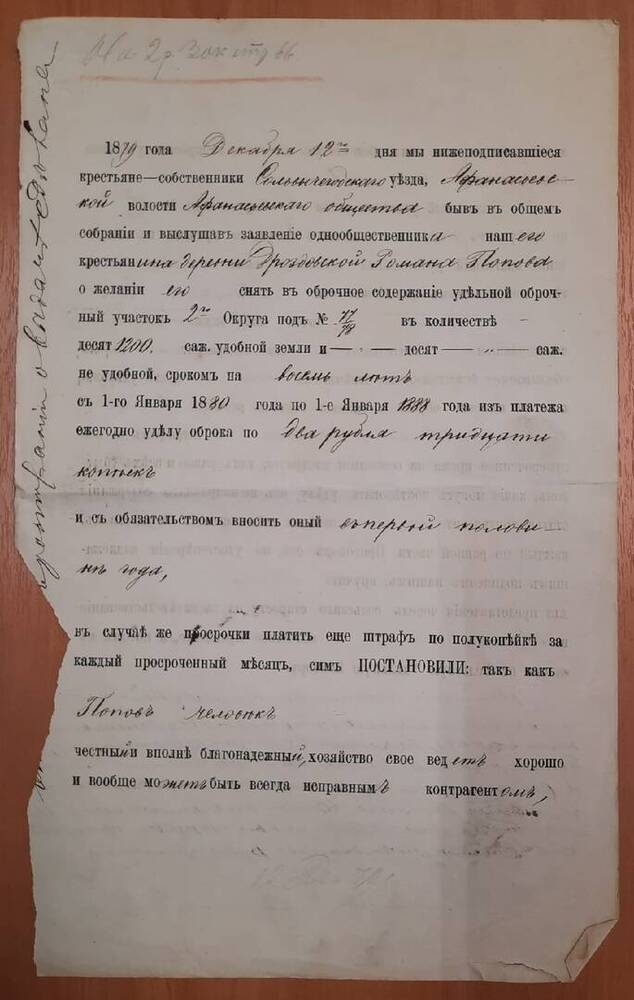 На 2
1879 года Декабря 12го дня мы нижеподписавшіеся
крестьяне—собственники Сольвычегодскаго уѣзда, Афанасьев-
ской волости Афанасьевскаго общества бывъ въ общемъ
собраніи и выслушавъ заявленіе однообщественника нашего
крестьянина деревни Дроздовской Романа Попова
о желаніи его снять въ оброчное содержаніе удѣльной оброч-
ный участокъ 2го Округа подъ № 77/78 въ количествѣ -
десят 1200. саж. удобной земли и — десят — „ — саж.
не удобной, срокомъ на восемь лѣтъ
съ 1-го Января 1880 года по 1-е Января 1888 года изъ платежа
ежегодно удѣлу оброка по два рубля тридцати
копѣекъ
и съ обязательствомъ вносить оный въ первой полови-
нѣ года,
въ случаѣ же просрочки платить еще штрафъ по полукопѣйкѣ за
каждый просроченный мѣсяцъ, симъ ПОСТАНОВИЛИ: такъ какъ
Поповъ человѣкъ
честный и вполнѣ благонадежный, хозяйство свое ведетъ хорошо
и вообще можетъ быть всегда исправнымъ контрагентомъ,